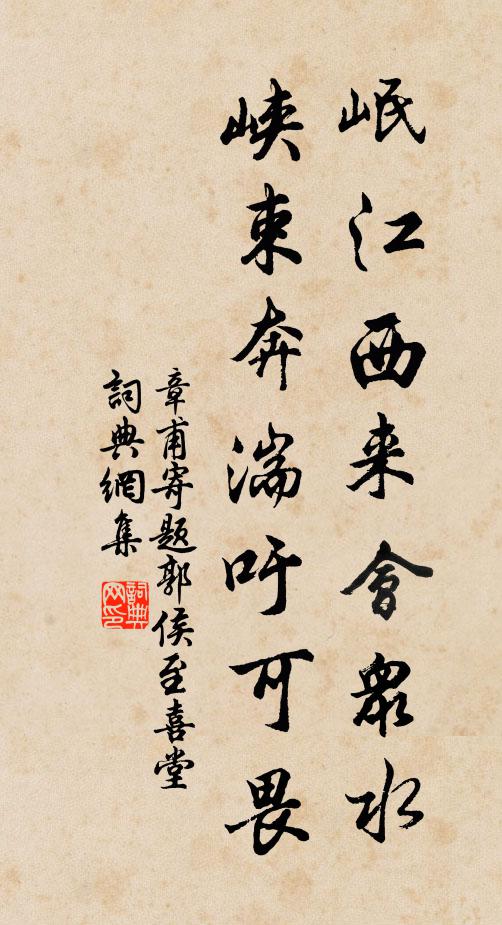 岷江西来會衆水
峽束奔湍吁可畏
章甫寄题郭侯至喜堂
詞典網集
詞典
网印